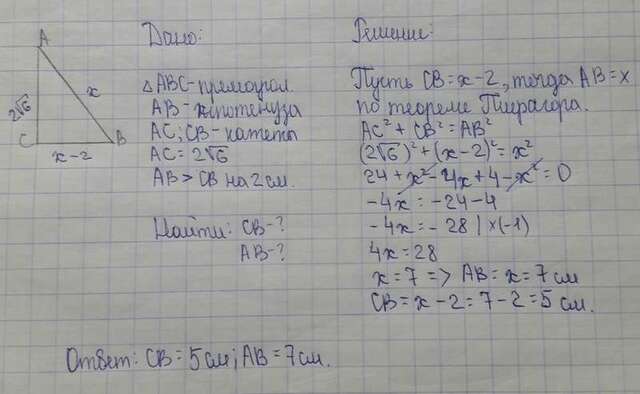 A
2√6
x
C
B
x-2
Дано:
△ABC-прямоугол.
AB-гипотенуза
AC; CB-катеты
AC=2√6
AB>CB на 2 см.
Найти: CB-?
AB-?
Решение:
Пусть CB=x-2, тогда AB=x
по теореме Пифагора.
AC²+CB²=AB²
(2√6)²+(x-2)²=x²
24+x²-4x+4-x²=0
-4x=-24-4
-4x=-28|×(-1)
4x=28
x=7 => AB=x=7 см
CB=x-2=7-2=5 см.
Ответ: CB=5см; AB=7см.